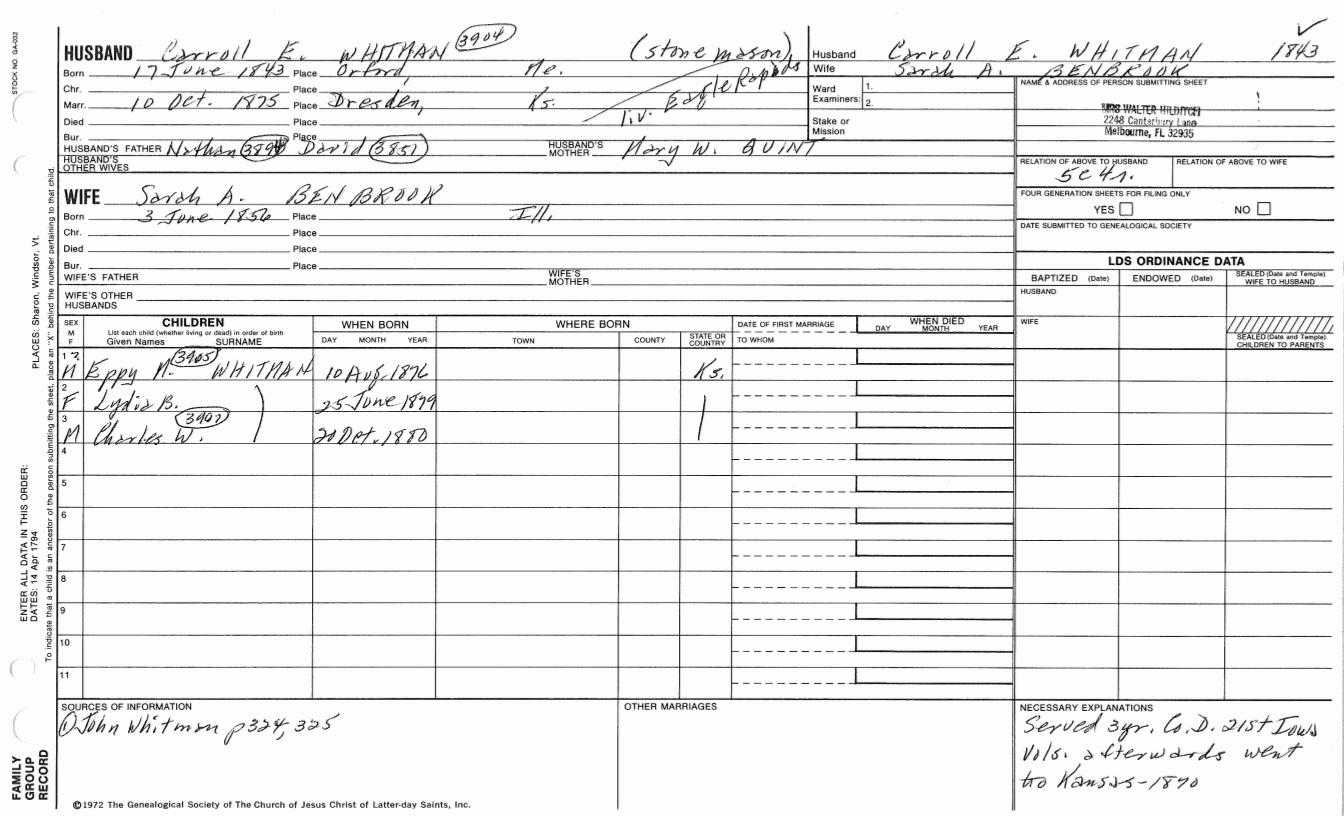 STOCK NO. GA-032
PLACES: Sharon, Windsor, Vt.
ENTER ALL DATA IN THIS ORDER:
DATES: 14 Apr 1794
To indicate that a child is an ancestor of the person submitting the sheet, place an "X" behind the number pertaining to that child.
FAMILY
GROUP
RECORD
HUSBAND Carroll E. WHITMAN 3904 (stone mason)
Born 17 June 1843 Place Orford, Me.
Chr. Place liv. Eagle Rapids
Marr. 10 Oct. 1875 Place Dresden, Ks.
Died Place
Bur. Place
HUSBAND'S FATHER Nathan 3894 David 3851 HUSBAND'S MOTHER Mary W. QUINT
HUSBAND'S OTHER WIVES
WIFE Sarah A. BENBROOK
Born 3 June 1856 Place Ill.
Chr. Place
Died Place
Bur. Place
WIFE'S FATHER WIFE'S MOTHER
WIFE'S OTHER HUSBANDS
Husband Carroll E. WHITMAN 1843
Wife Sarah A. BENBROOK
Ward Examiners: 1.
2.
Stake or Mission
NAME & ADDRESS OF PERSON SUBMITTING SHEET
MRS WALTER HILDITCH
2248 Canterbury Lane
Melbourne, FL 32935
RELATION OF ABOVE TO HUSBAND RELATION OF ABOVE TO WIFE
5c4r.
FOUR GENERATION SHEETS FOR FILING ONLY
YES NO
DATE SUBMITTED TO GENEALOGICAL SOCIETY
LDS ORDINANCE DATA
BAPTIZED (Date) ENDOWED (Date) SEALED (Date and Temple) WIFE TO HUSBAND
HUSBAND
WIFE
SEALED (Date and Temple) CHILDREN TO PARENTS
SEX M F CHILDREN WHEN BORN WHERE BORN DATE OF FIRST MARRIAGE WHEN DIED
List each child (whether living or dead) in order of birth
Given Names SURNAME DAY MONTH YEAR TOWN COUNTY STATE OR COUNTRY TO WHOM DAY MONTH YEAR
1 M Eppy M. 3905 WHITMAN 10 Aug. 1876 Ks.
2 F Lydia B. 25 June 1879
3 M Charles W. 3907 20 Oct. 1880
4
5
6
7
8
9
10
11
SOURCES OF INFORMATION
① John Whitman p324, 325
©1972 The Genealogical Society of The Church of Jesus Christ of Latter-day Saints, Inc.
OTHER MARRIAGES
NECESSARY EXPLANATIONS
Served 3yr. Co. D. 21st Iowa
Vols. afterwards went
to Kansas-1870